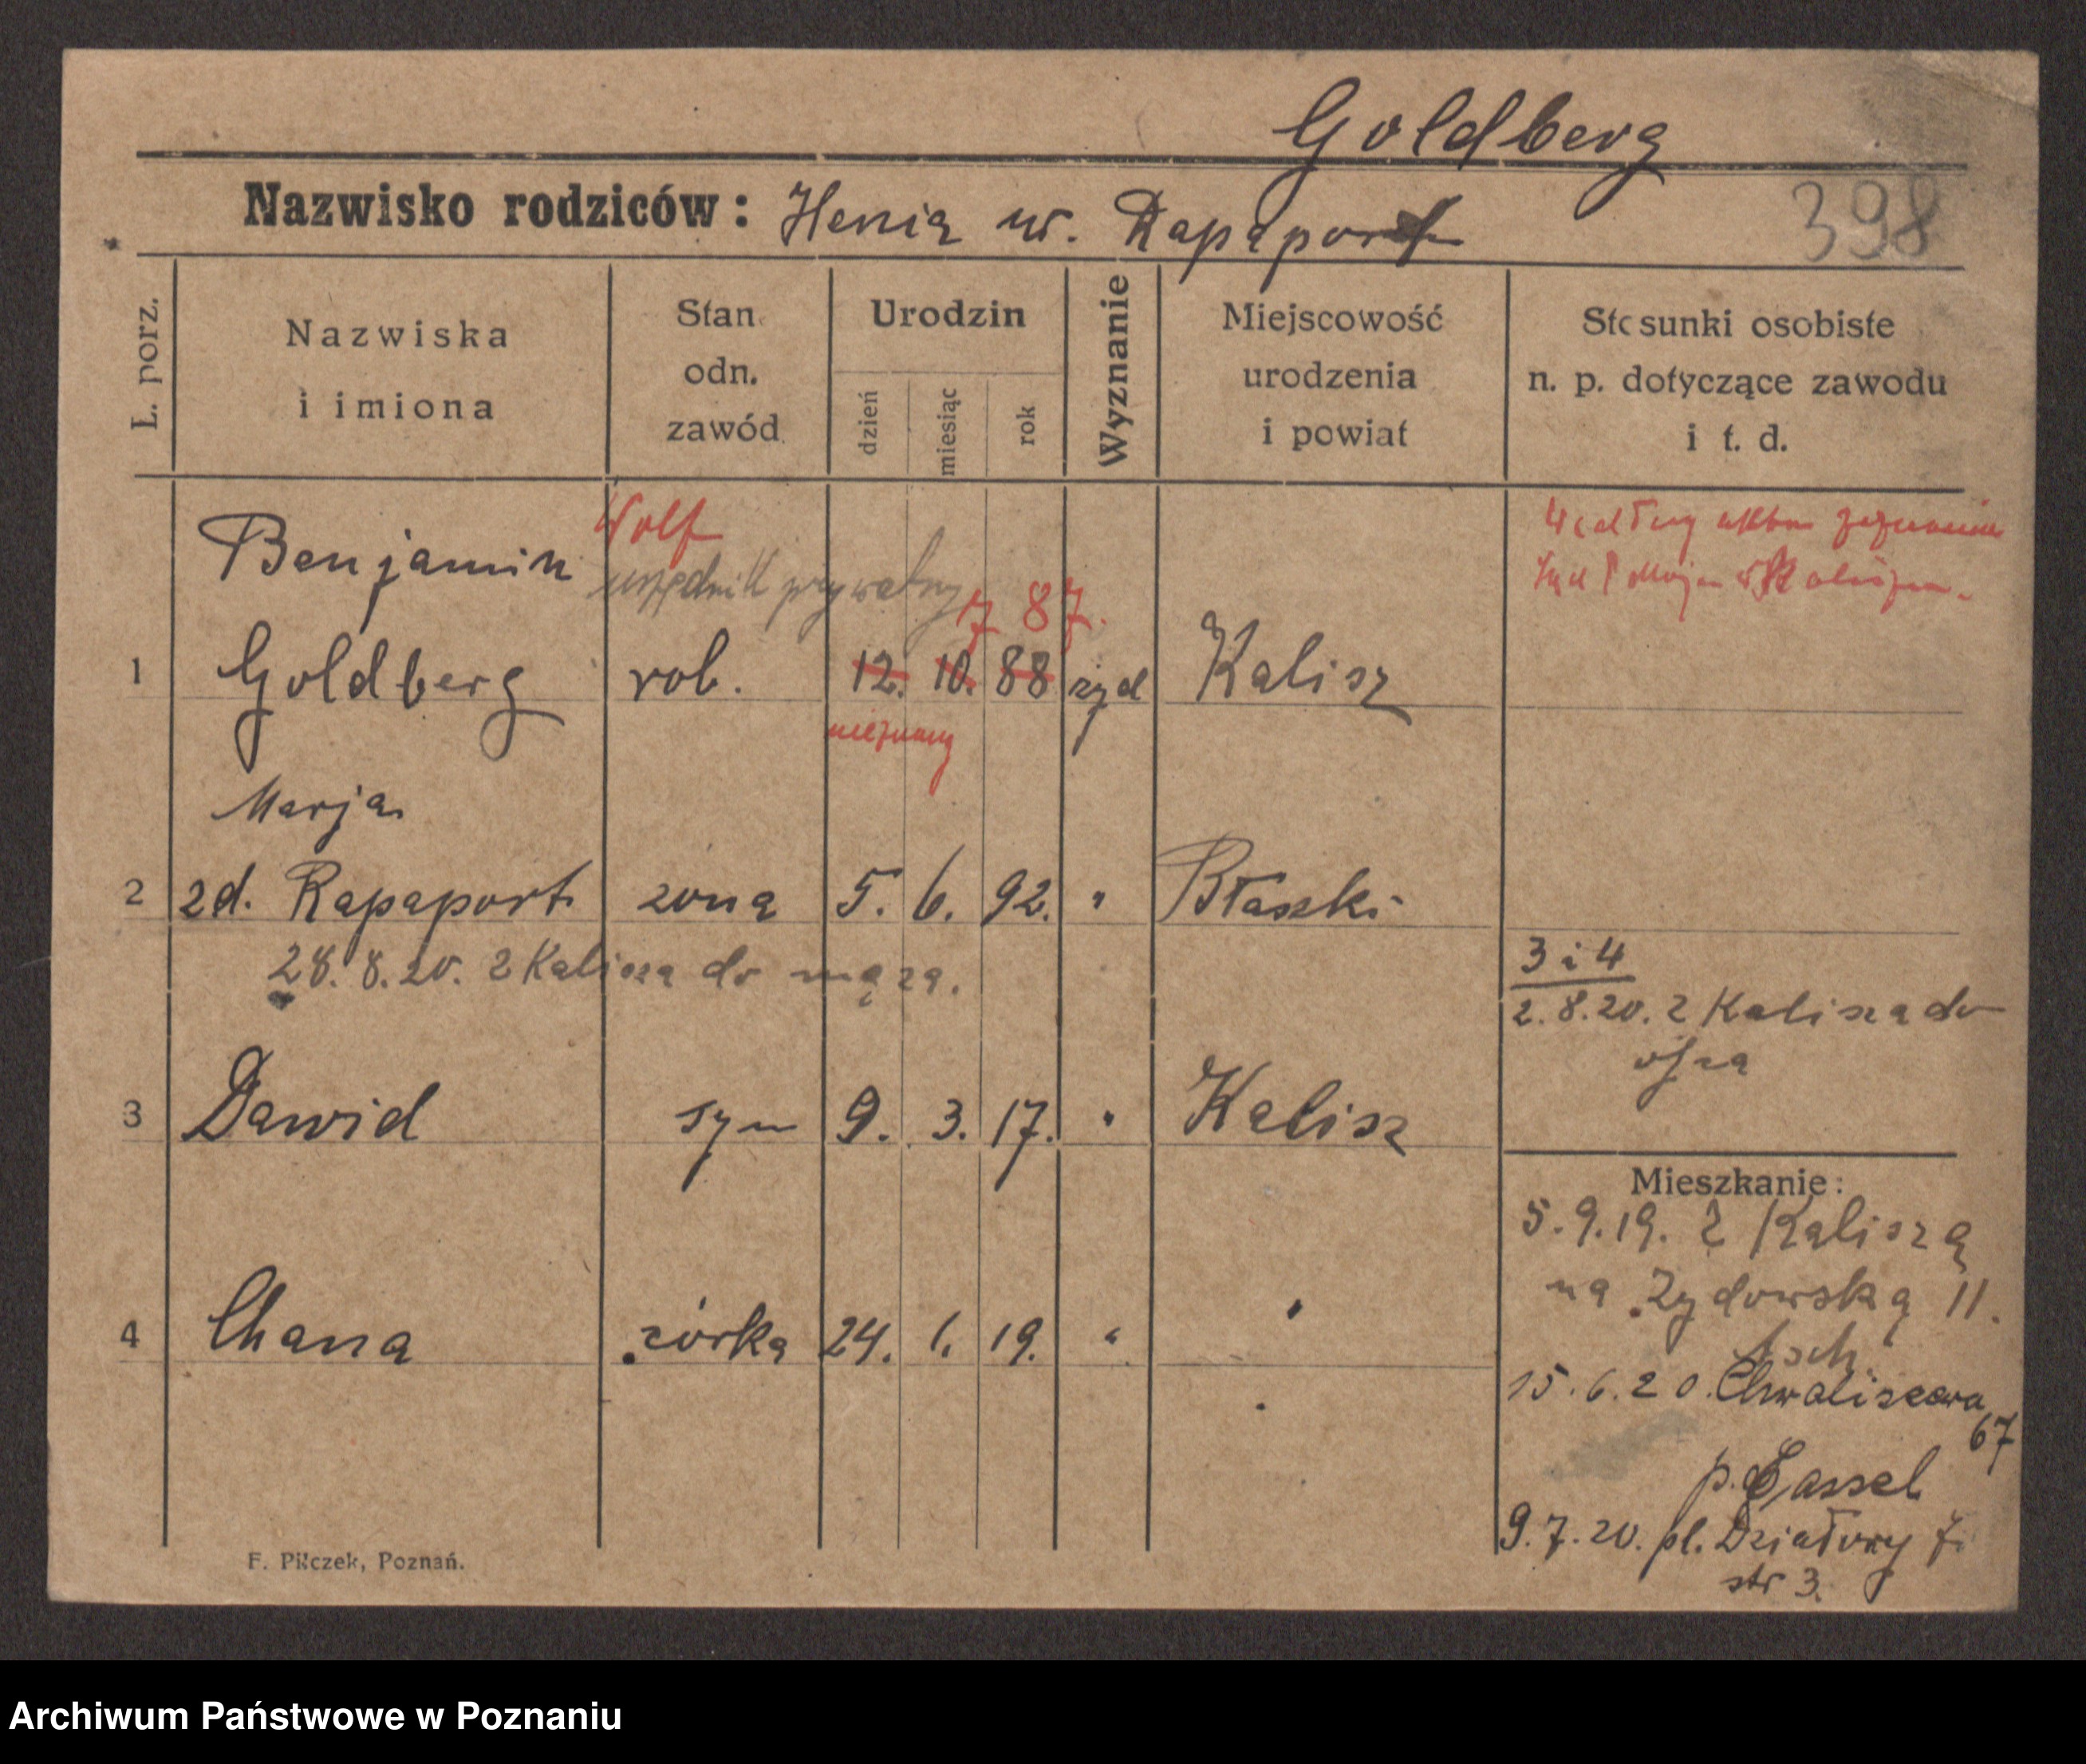 Goldberg
Nazwisko rodziców: Henia ur. Rapaport
398
L. porz.
Nazwiska
i imiona
Stan
odn.
zawód
Urodzin
dzień
miesiąc
rok
Wyznanie
Miejscowość
urodzenia
i powiat
Stosunki osobiste
n. p. dotyczące zawodu
i t. d.
Benjamin Wolf
urzędnik prywatny
Według aktu
7 87.
1 Goldberg rob. 12. 10. 88 żyd Kalisz
nieznany
Marja
2 zd. Rapaport żona 5. 6. 92. " Błaszki
28. 8. 20. z Kalisza do męża.
3 i 4
2. 8. 20. z Kalisza do
ojca
3 Dawid syn 9. 3. 17. " Kalisz
Mieszkanie:
5. 9. 19. z Kalisza
na Żydowską 11.
4 Chana córka 24. 1. 19. " "
15. 6. 20. Chwaliszewo
67
p. Cassel
9. 7. 20. pl. Działowy 7
str 3.
F. Pilczek, Poznań.
Archiwum Państwowe w Poznaniu